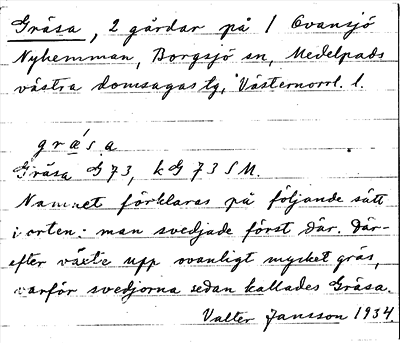 Gräsa, 2 gårdar på 1 Ovansjö
Nyhemman, Borgsjö sn, Medelpads
västra domsagas tg, Västernorrl. l.
gräsa
Gräsa G 73, kG 73 SM.
Namnet förklaras på följande sätt
i orten: man svedjade först där. Där-
efter växte upp ovanligt mycket gräs,
varför svedjorna sedan kallades Gräsa.
Valter Jansson 1934.